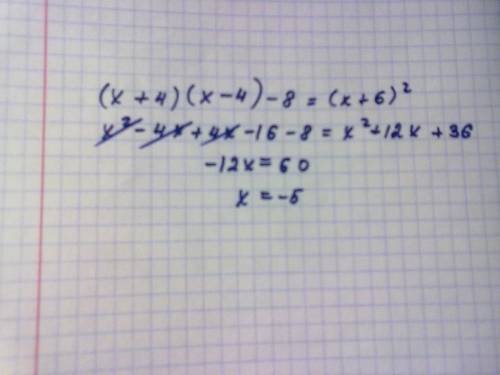 (x + 4)(x - 4) - 8 = (x + 6)²
x² - 4x + 4x - 16 - 8 = x² + 12x + 36
-12x = 60
x = -5